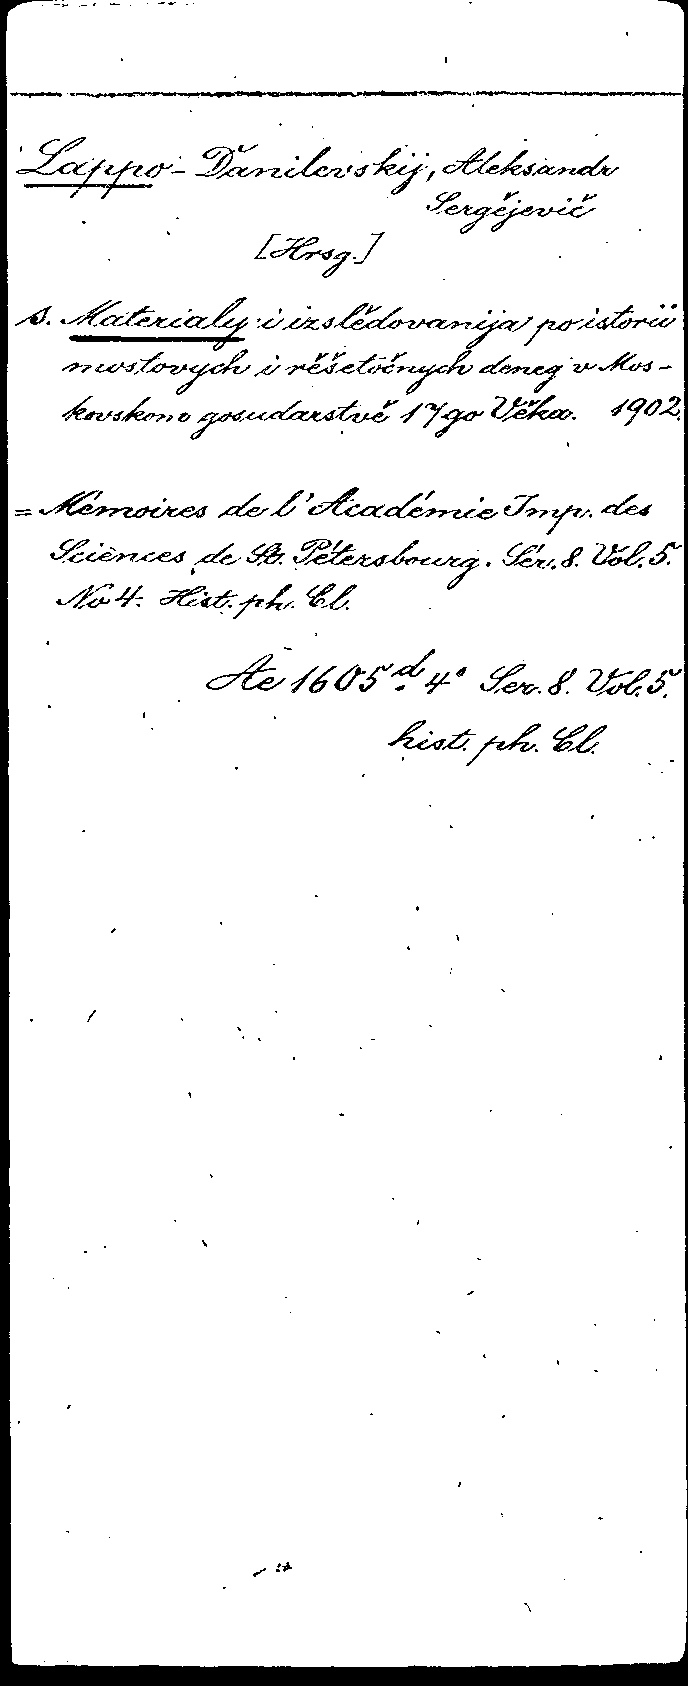 Lappo-Danilevskij, Aleksandr
Sergějevič
[Hrsg.]
s. Materialy i izslědovanija po istorii
mostovych i rěšetočnych deneg v Mos-
kovskom gosudarstvě 17go Věka. 1902.
= Mémoires de l'Académie Imp. des
Sciences de St. Pétersbourg. Sér. 8. Vol. 5.
No 4. Hist. ph. Cl.
Ae 1605 d 4° Ser. 8. Vol. 5.
hist. ph. Cl.